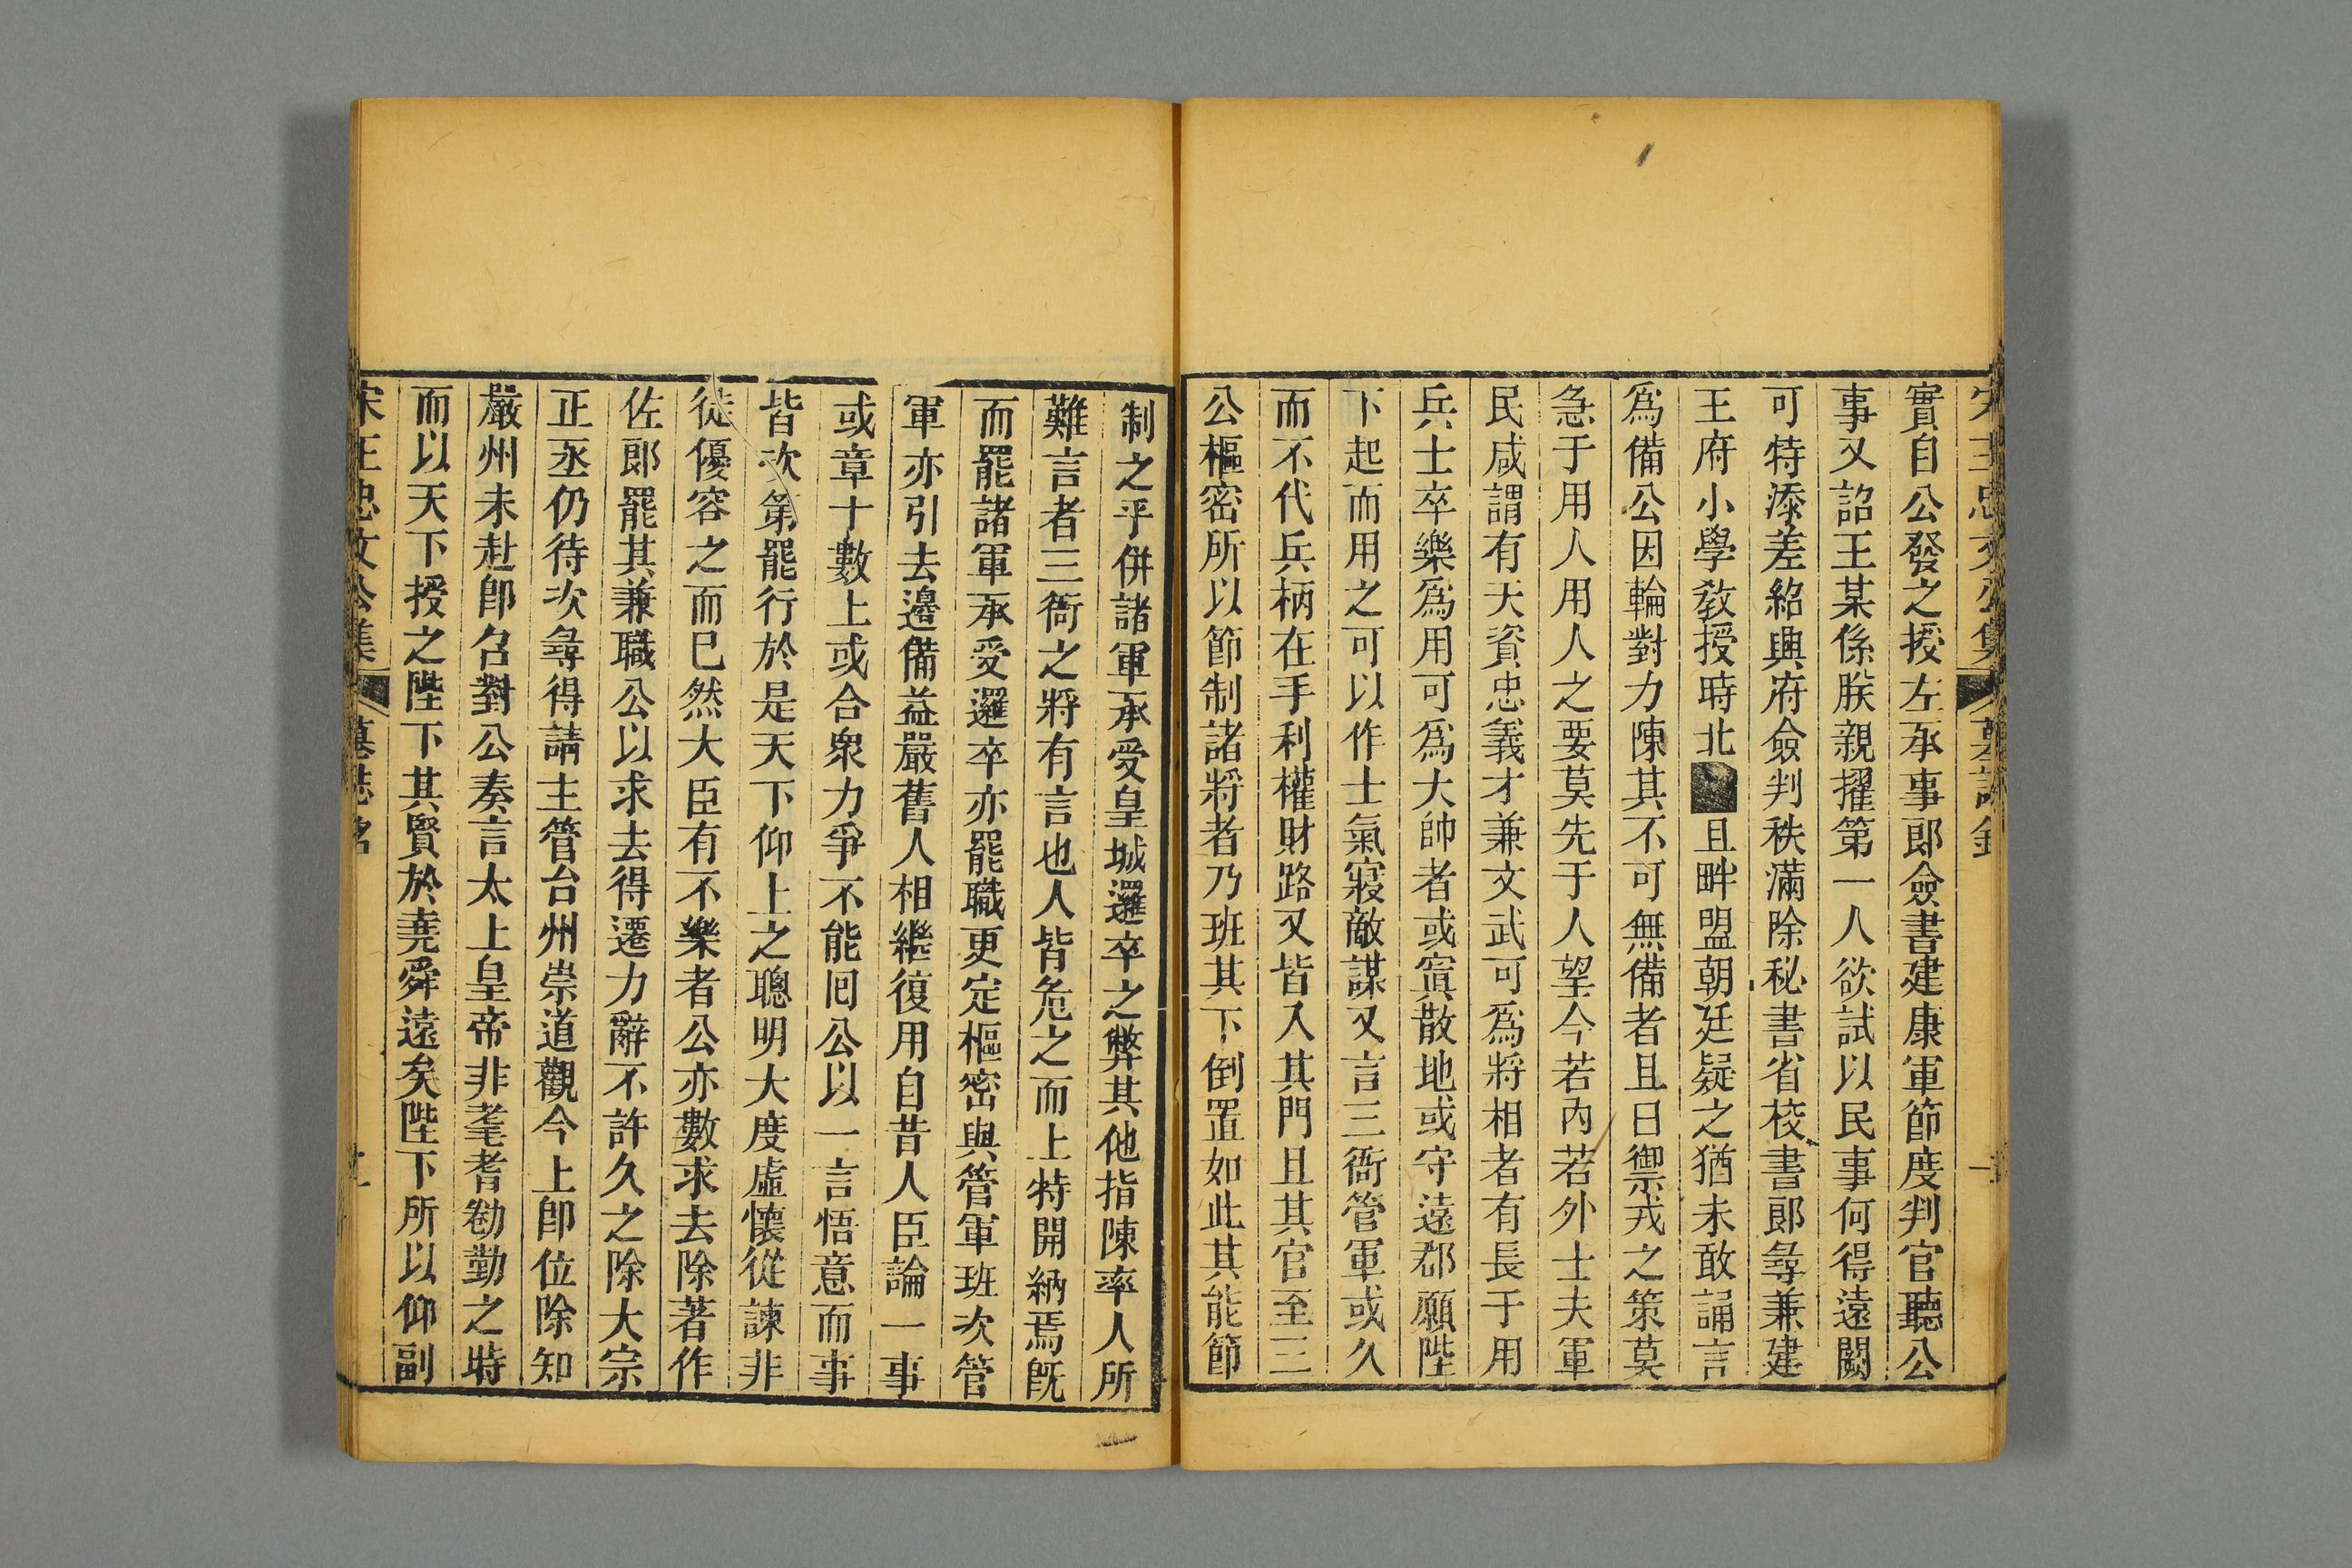 實自公發之授左承事郎僉書建康軍節度判官聽公
事又詔王某係朕親擢第一人欲試以民事何得遠闕
可特添差紹興府僉判秩滿除秘書省校書郎尋兼建
王府小學教授時北且畔盟朝廷疑之猶未敢誦言
爲備公因輪對力陳其不可無備者且日禦戎之策莫
急于用人用人之要莫先于人望今若內若外士夫軍
民咸謂有天資忠義才兼文武可爲將相者有長于用
兵士卒樂爲用可爲大帥者或寘散地或守遠郡願陛
下起而用之可以作士氣寢敵謀又言三衙管軍或久
而不代兵柄在手利權財路又皆入其門且其官至三
公樞密所以節制諸將者乃班其下倒置如此其能節
制之乎併諸軍承受皇城邏卒之弊其他指陳率人所
難言者三衙之將有言也人皆危之而上特開納焉旣
而罷諸軍承受邏卒亦罷職更定樞密與管軍班次管
軍亦引去邊備益嚴舊人相繼復用自昔人臣論一事
或章十數上或合衆力爭不能囘公以一言悟意而事
皆次第罷行於是天下仰上之聰明大度虛懷從諫非
徒優容之而已然大臣有不樂者公亦數求去除著作
佐郎罷其兼職公以求去得遷力辭不許久之除大宗
正丞仍待次尋得請主管台州崇道觀今上卽位除知
嚴州未赴卽召對公奏言太上皇帝非耄耆勌勤之時
而以天下授之陛下其賢於堯舜遠矣陛下所以仰副
宋王忠文公集 墓誌銘